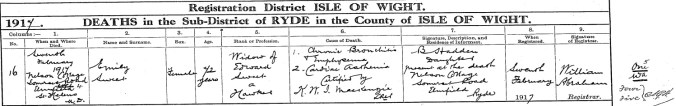 Registration District ISLE OF WIGHT.
1917. DEATHS in the Sub-District of RYDE in the County of ISLE OF WIGHT.
Columns:— 1. 2. 3. 4. 5. 6. 7. 8. 9.
No. When and Where Died. Name and Surname. Sex. Age. Rank or Profession. Cause of Death. Signature, Description, and Residence of Informant. When Registered. Signature of Registrar.
16
Seventh
February
1917
Nelson Cottage
Somerset Road
St Helens
U.D.
Emily
Sweet
Female
72
years
Widow of
Edward
Sweet
a
Hawker
1. Chronic Bronchitis
Emphysema
2. Cardiac Asthenia
Certified by
K.W.I. Mackenzie
Daughter
Present at the death
Nelson Cottage
Somerset Road
Ryde
Seventh
February
1917
William
Abraham
Registrar.
Four
Five